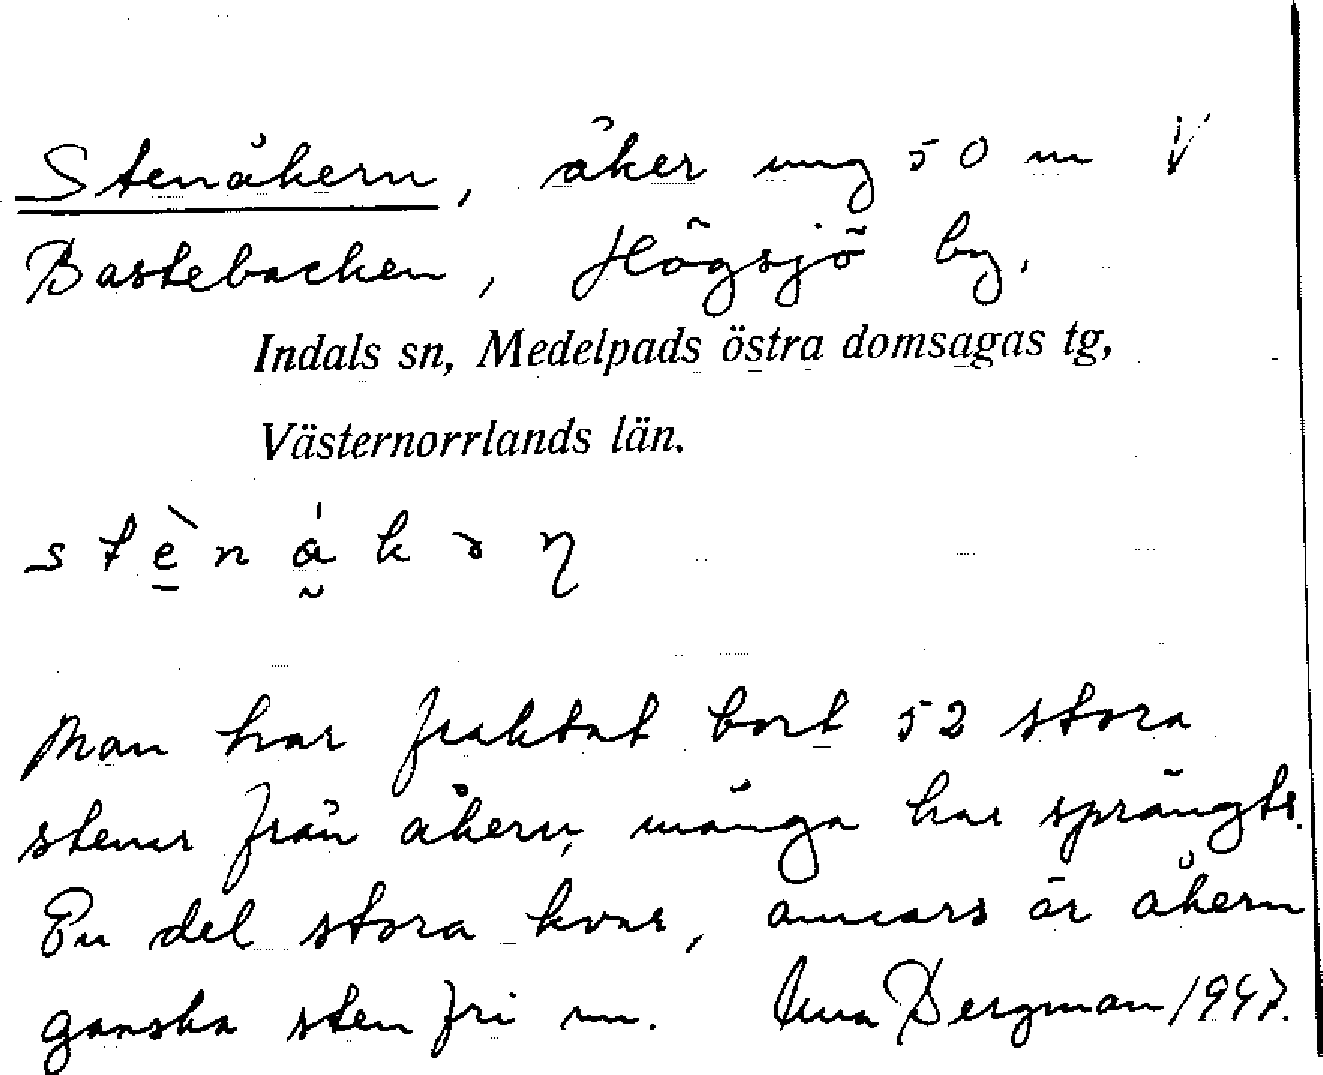 Stenåkern, åker ung 50 m V
Bastebacken, Högsjö by.
Indals sn, Medelpads östra domsagas tg,
Västernorrlands län.
stènákən
Man har fraktat bort 52 stora
stenar från åkern, många har sprängts.
En del stora kvar, annars är åkern
ganska stenfri nu. Bergman 1947.